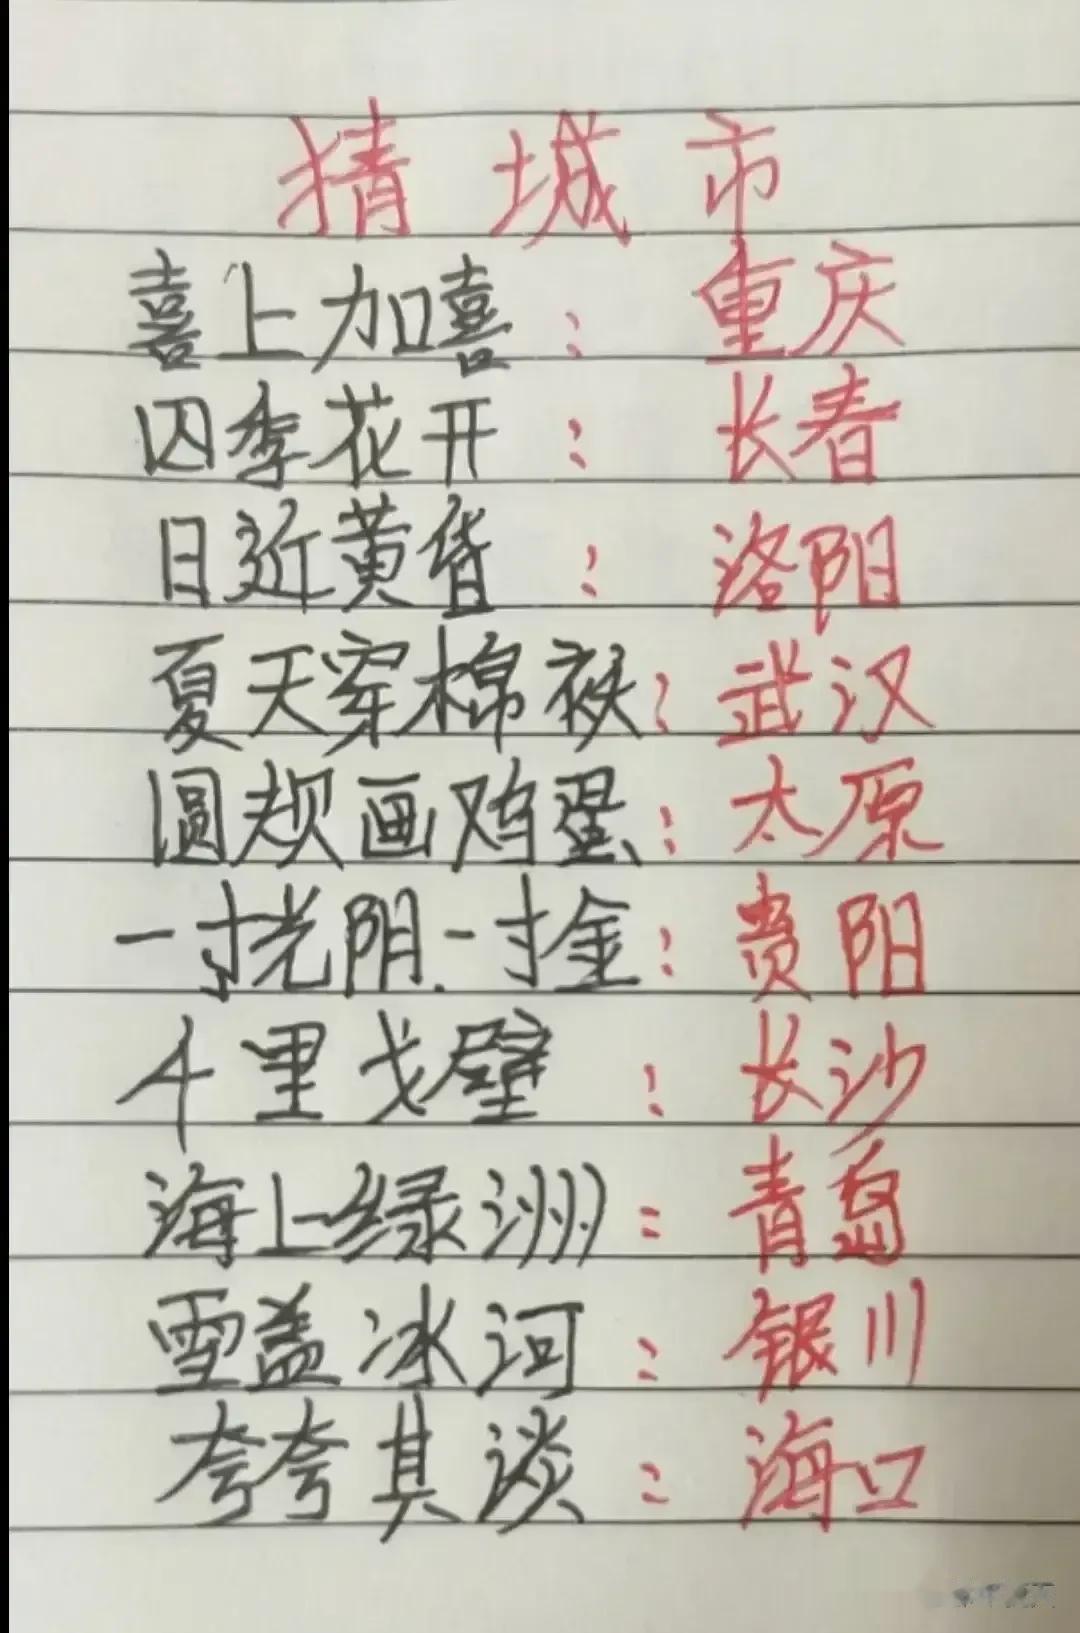 猜城市
喜上加喜：重庆
四季花开：长春
日近黄昏：洛阳
夏天穿棉袄：武汉
圆规画鸡蛋：太原
一寸光阴一寸金：贵阳
千里戈壁：长沙
海上绿洲：青岛
雪盖冰河：银川
夸夸其谈：海口